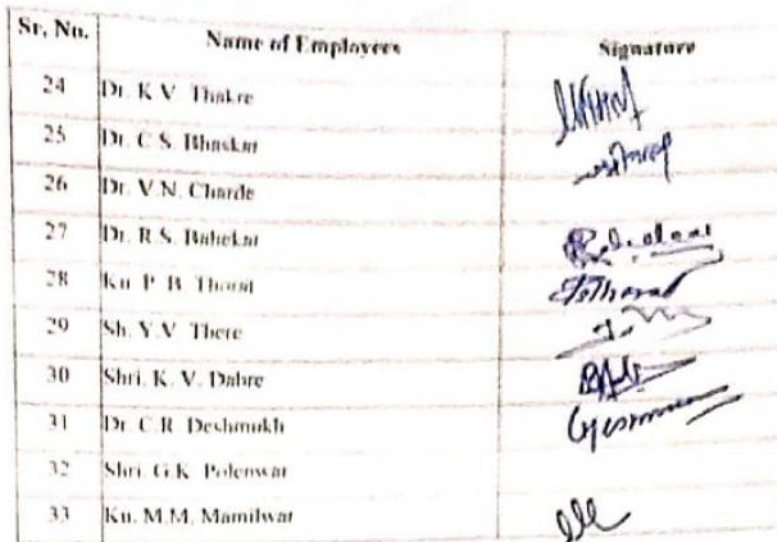 Sr. No. Name of Employees Signature
24 Dr. K.V. Thakre
25 Dr. C.S. Bhaskar
26 Dr. V.N. Charde
27 Dr. R.S. Bahekar
28 Ku. P. B. Thorat
29 Sh. Y.V. There
30 Shri. K. V. Dabre
31 Dr. C.R. Deshmukh
32 Shri. G.K. Polenwar
33 Ku. M.M. Mamilwar